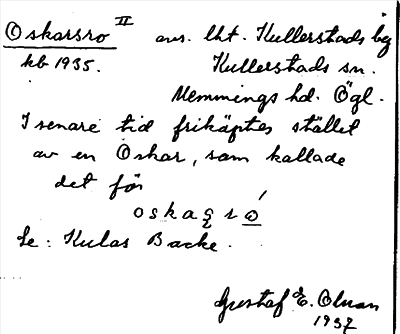 Oskarsro II avs. lht. Kullerstads bg
kb 1935. Kullerstads sn.
Memmings hd. Ögl.
I senare tid friköptes stället
av en Oskar, som kallade
det för
oskaʂró
Se: Kulas Backe.
Gustaf E. Olman
1937